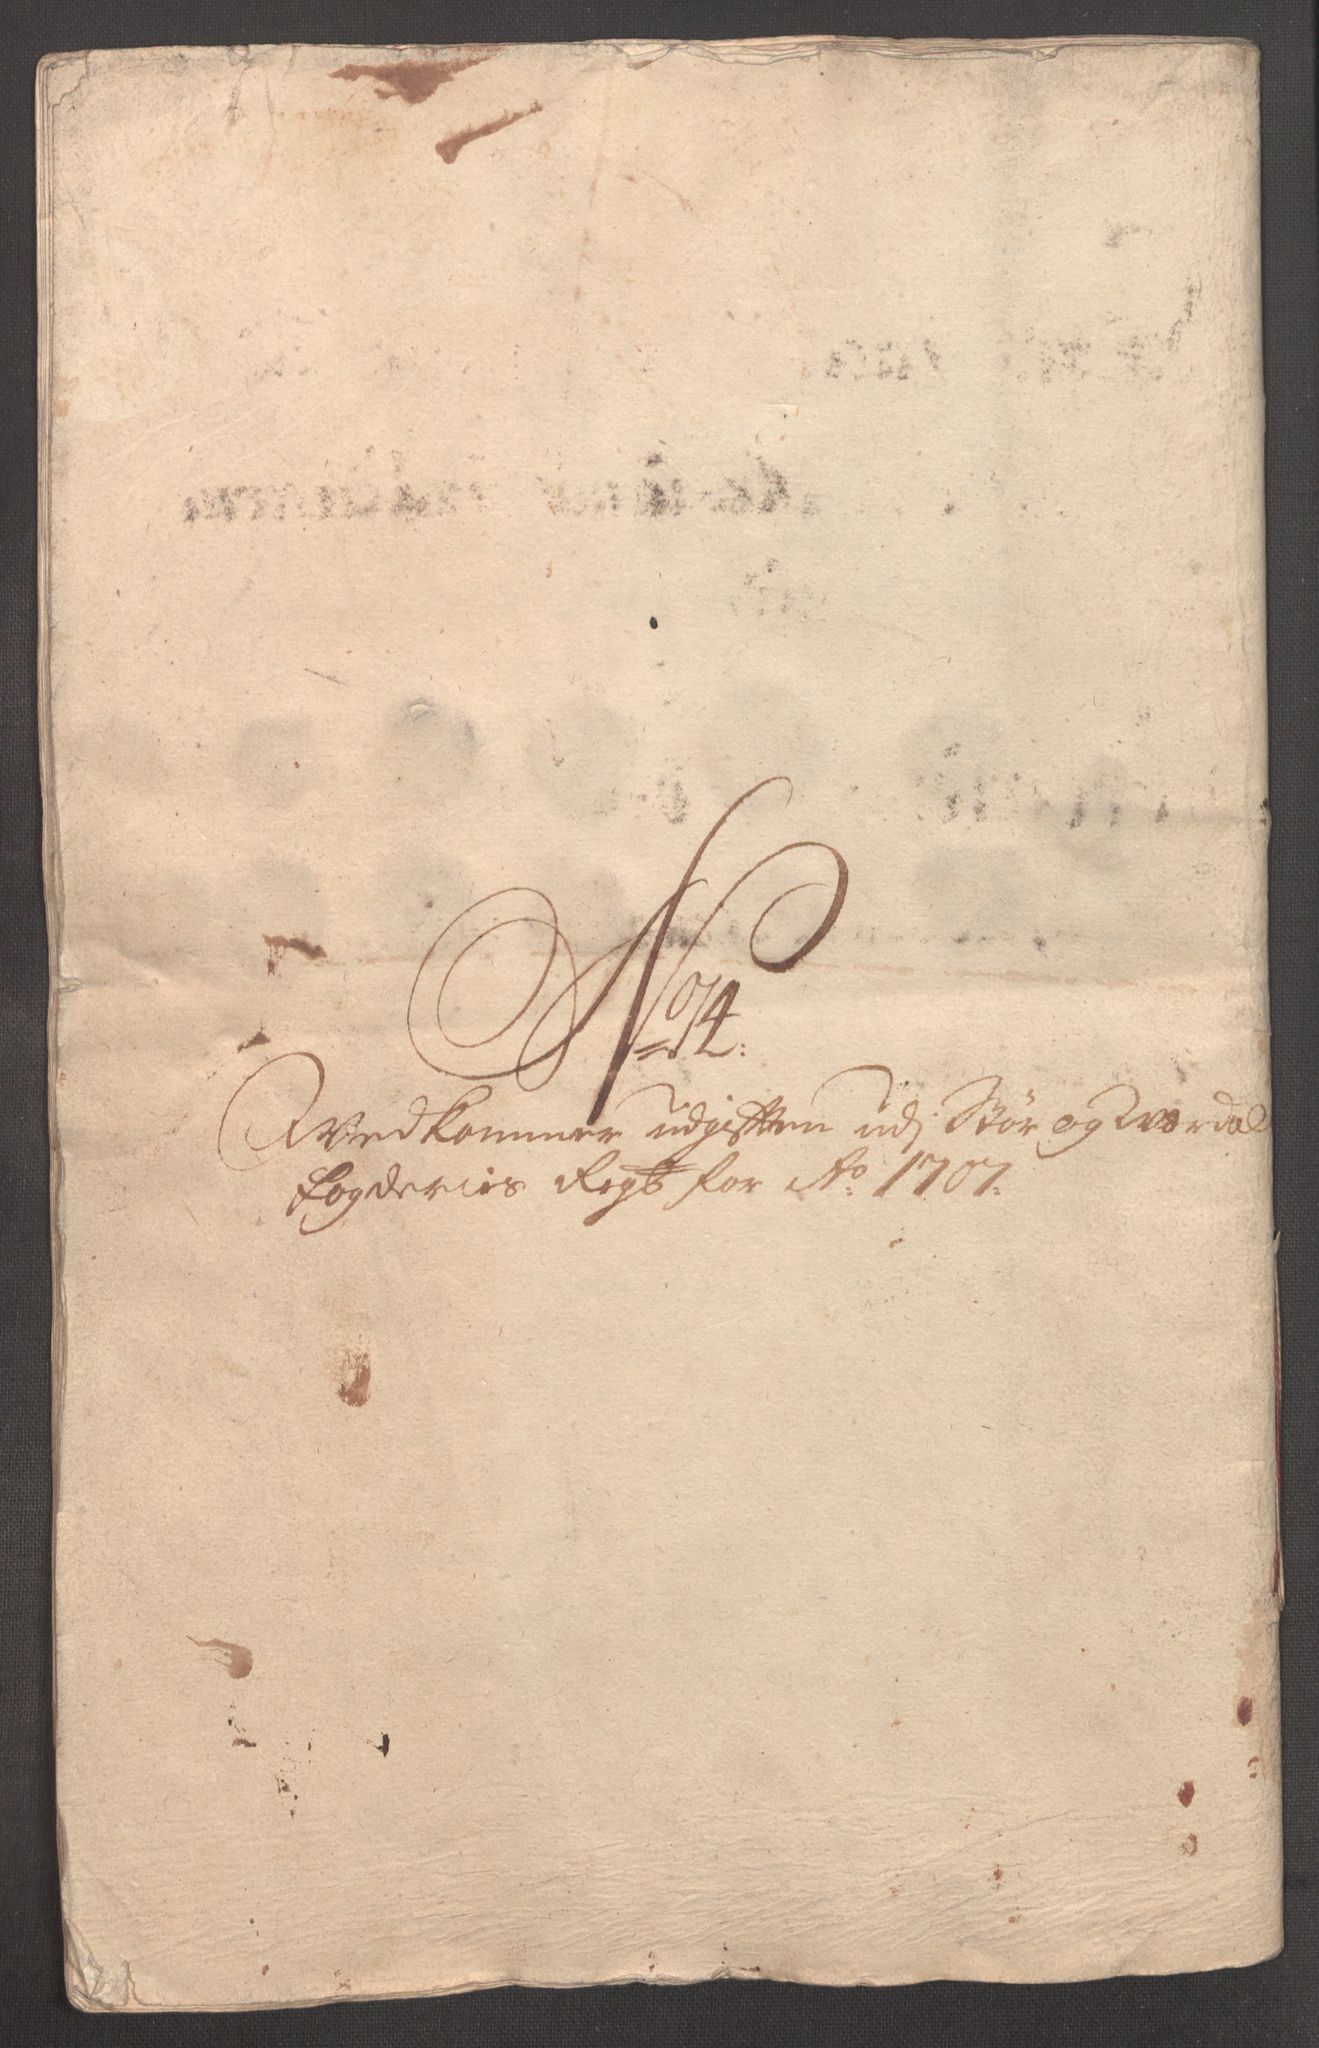 No 4:
Vedkommer udgifften udj Stør og Værdal
Fogderies Regsb for Ao 1707: